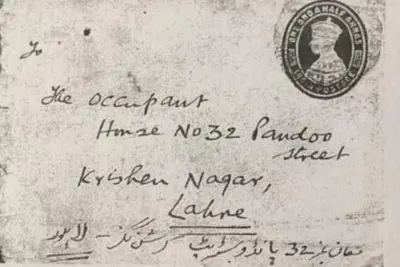 ONE AND A HALF ANNAS
POSTAGE
To
The Occupant
House No 32 Pandoo
Street
Krishen Nagar,
Lahre
مکان نمبر 32 پانڈو سٹریٹ کرشن نگر - لاہور